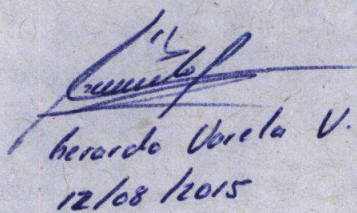 Gerardo Varela V.
12/08/2015